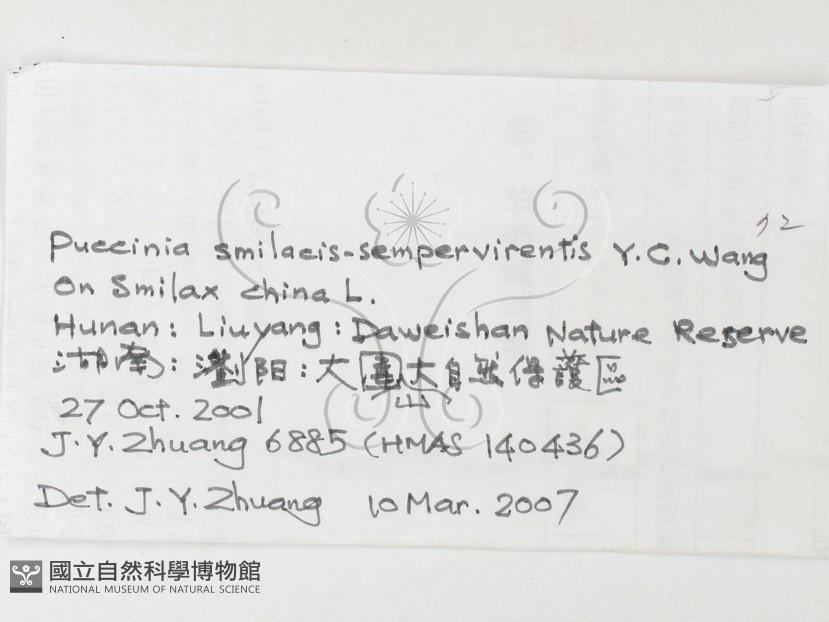 32
Puccinia smilacis-sempervirentis Y.C. Wang
On Smilax china L.
Hunan: Liuyang: Daweishan Nature Reserve
湖南: 瀏阳: 大圍山自然保護區
27 Oct. 2001
J.Y. Zhuang 6885 (HMAS 140436)
Det. J.Y. Zhuang 10 Mar. 2007
國立自然科學博物館
NATIONAL MUSEUM OF NATURAL SCIENCE